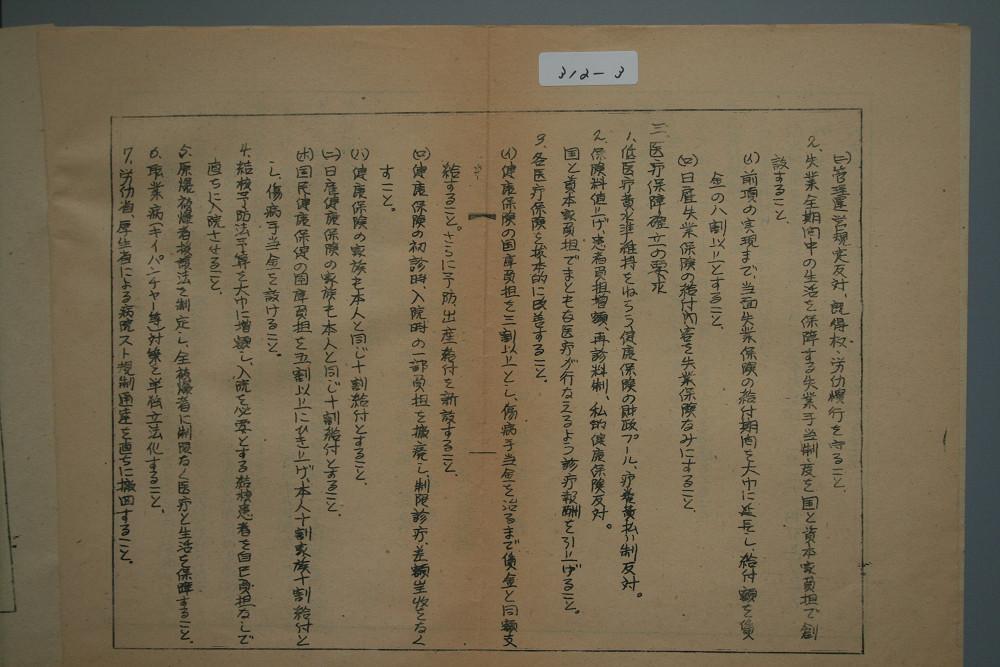 312-3
(二)管理運営規定反対、既得権、労仂慣行を守ること、
2、失業全期間中の生活を保障する失業手当制度を国と資本家負担で創
設すること、
(イ)前項の実現まで、当面失業保険の給付期間を大巾に延長し、給付額を賃
金の八割以上とすること、
(ロ)日雇失業保険の給付内容を失業保険なみにすること、
三、医疗保障確立の要求
1、低医疗費水準維持をねらう健康保険の財政プール、疗養費払い制反対。
2、保険料値上げ、患者負担増額、再診料制、私的健康保険反対。
国と資本家負担でまともな医疗が行なえるよう診疗報酬を引上げること。
3、各医疗保険を抜本的に改善すること、
(イ)健康保険の国庫負担を三割以上とし、傷病手当金を治るまで賃金と同額支
給すること。さらに予防、出産給付を新設すること、
(ロ)健康保険の初診時、入院時の一部負担を撤廃し、制限診疗、差額徴收をなく
すこと。
(ハ)健康保険の家族も本人と同じ十割給付とすること、
(ニ)日雇健康保険の家族も本人と同じ十割給付とすること、
(ホ)国民健康保健の国庫負担を五割以上にひき上げ、本人十割家族十割給付と
し、傷病手当金を設けること。
4、結核予防法予算を大巾に増額し、入院を必要とする結核患者を自己負担なしで
直ちに入院させること、
5、原爆被爆者援護法を制定し、全被爆者に制限なく医疗と生活を保障すること、
6、職業病(キイパンチャー等)対策を単独立法化すること、
7、労仂省、厚生省による病院スト規制通達を直ちに撤回すること。